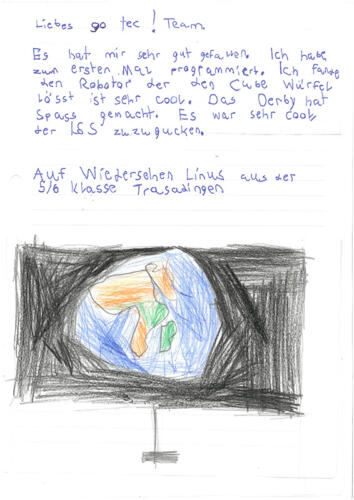 Liebes go tec! Team
Es hat mir sehr gut gefallen. Ich habe
zum ersten Mal programmiert. Ich fande
den Robotor der den Cube Würfel
lösst ist sehr cool. Das Derby hat
Spass gemacht. Es war sehr cool
der ISS zuzugucken.
Auf Wiedersehen Linus aus der
5/6 Klasse Trasadingen